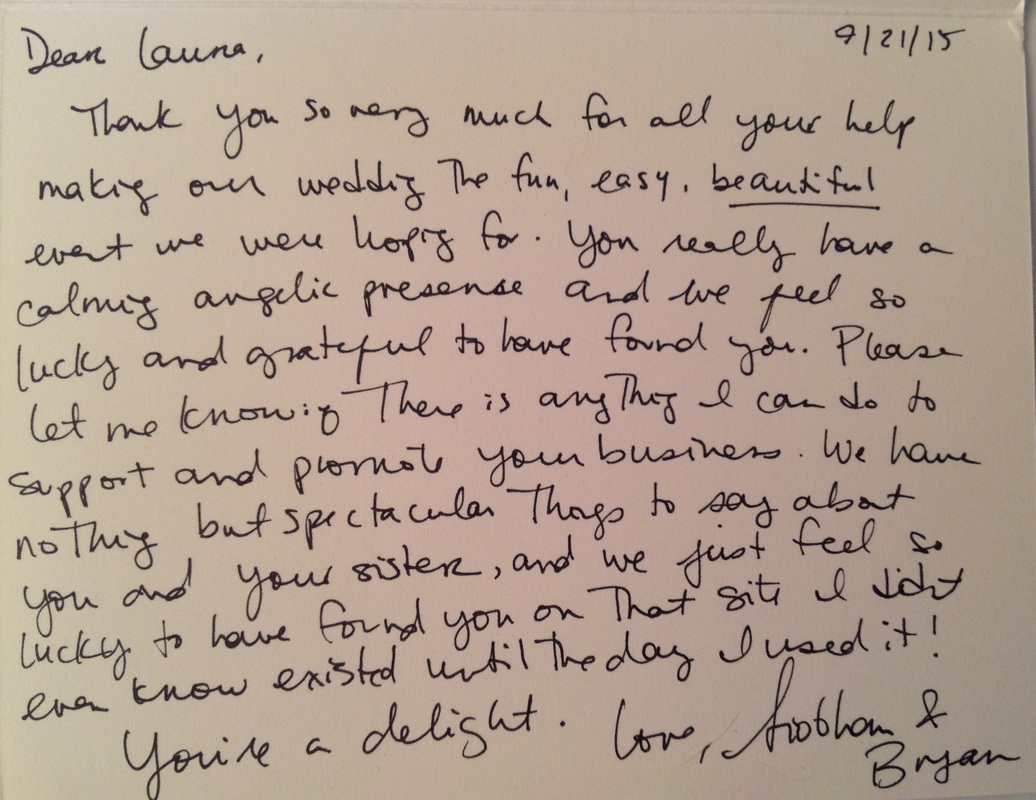 9/21/15
Dear Laura,
Thank you so very much for all your help
making our wedding the fun, easy, beautiful
event we were hoping for. You really have a
calming angelic presense and we feel so
lucky and grateful to have found you. Please
let me know if there is anything I can do to
support and promote your business. We have
nothing but spectacular things to say about
you and your sister, and we just feel so
lucky to have found you on that site I didn't
even know existed until the day I used it!
You're a delight. Love, Siobhan &
Bryan